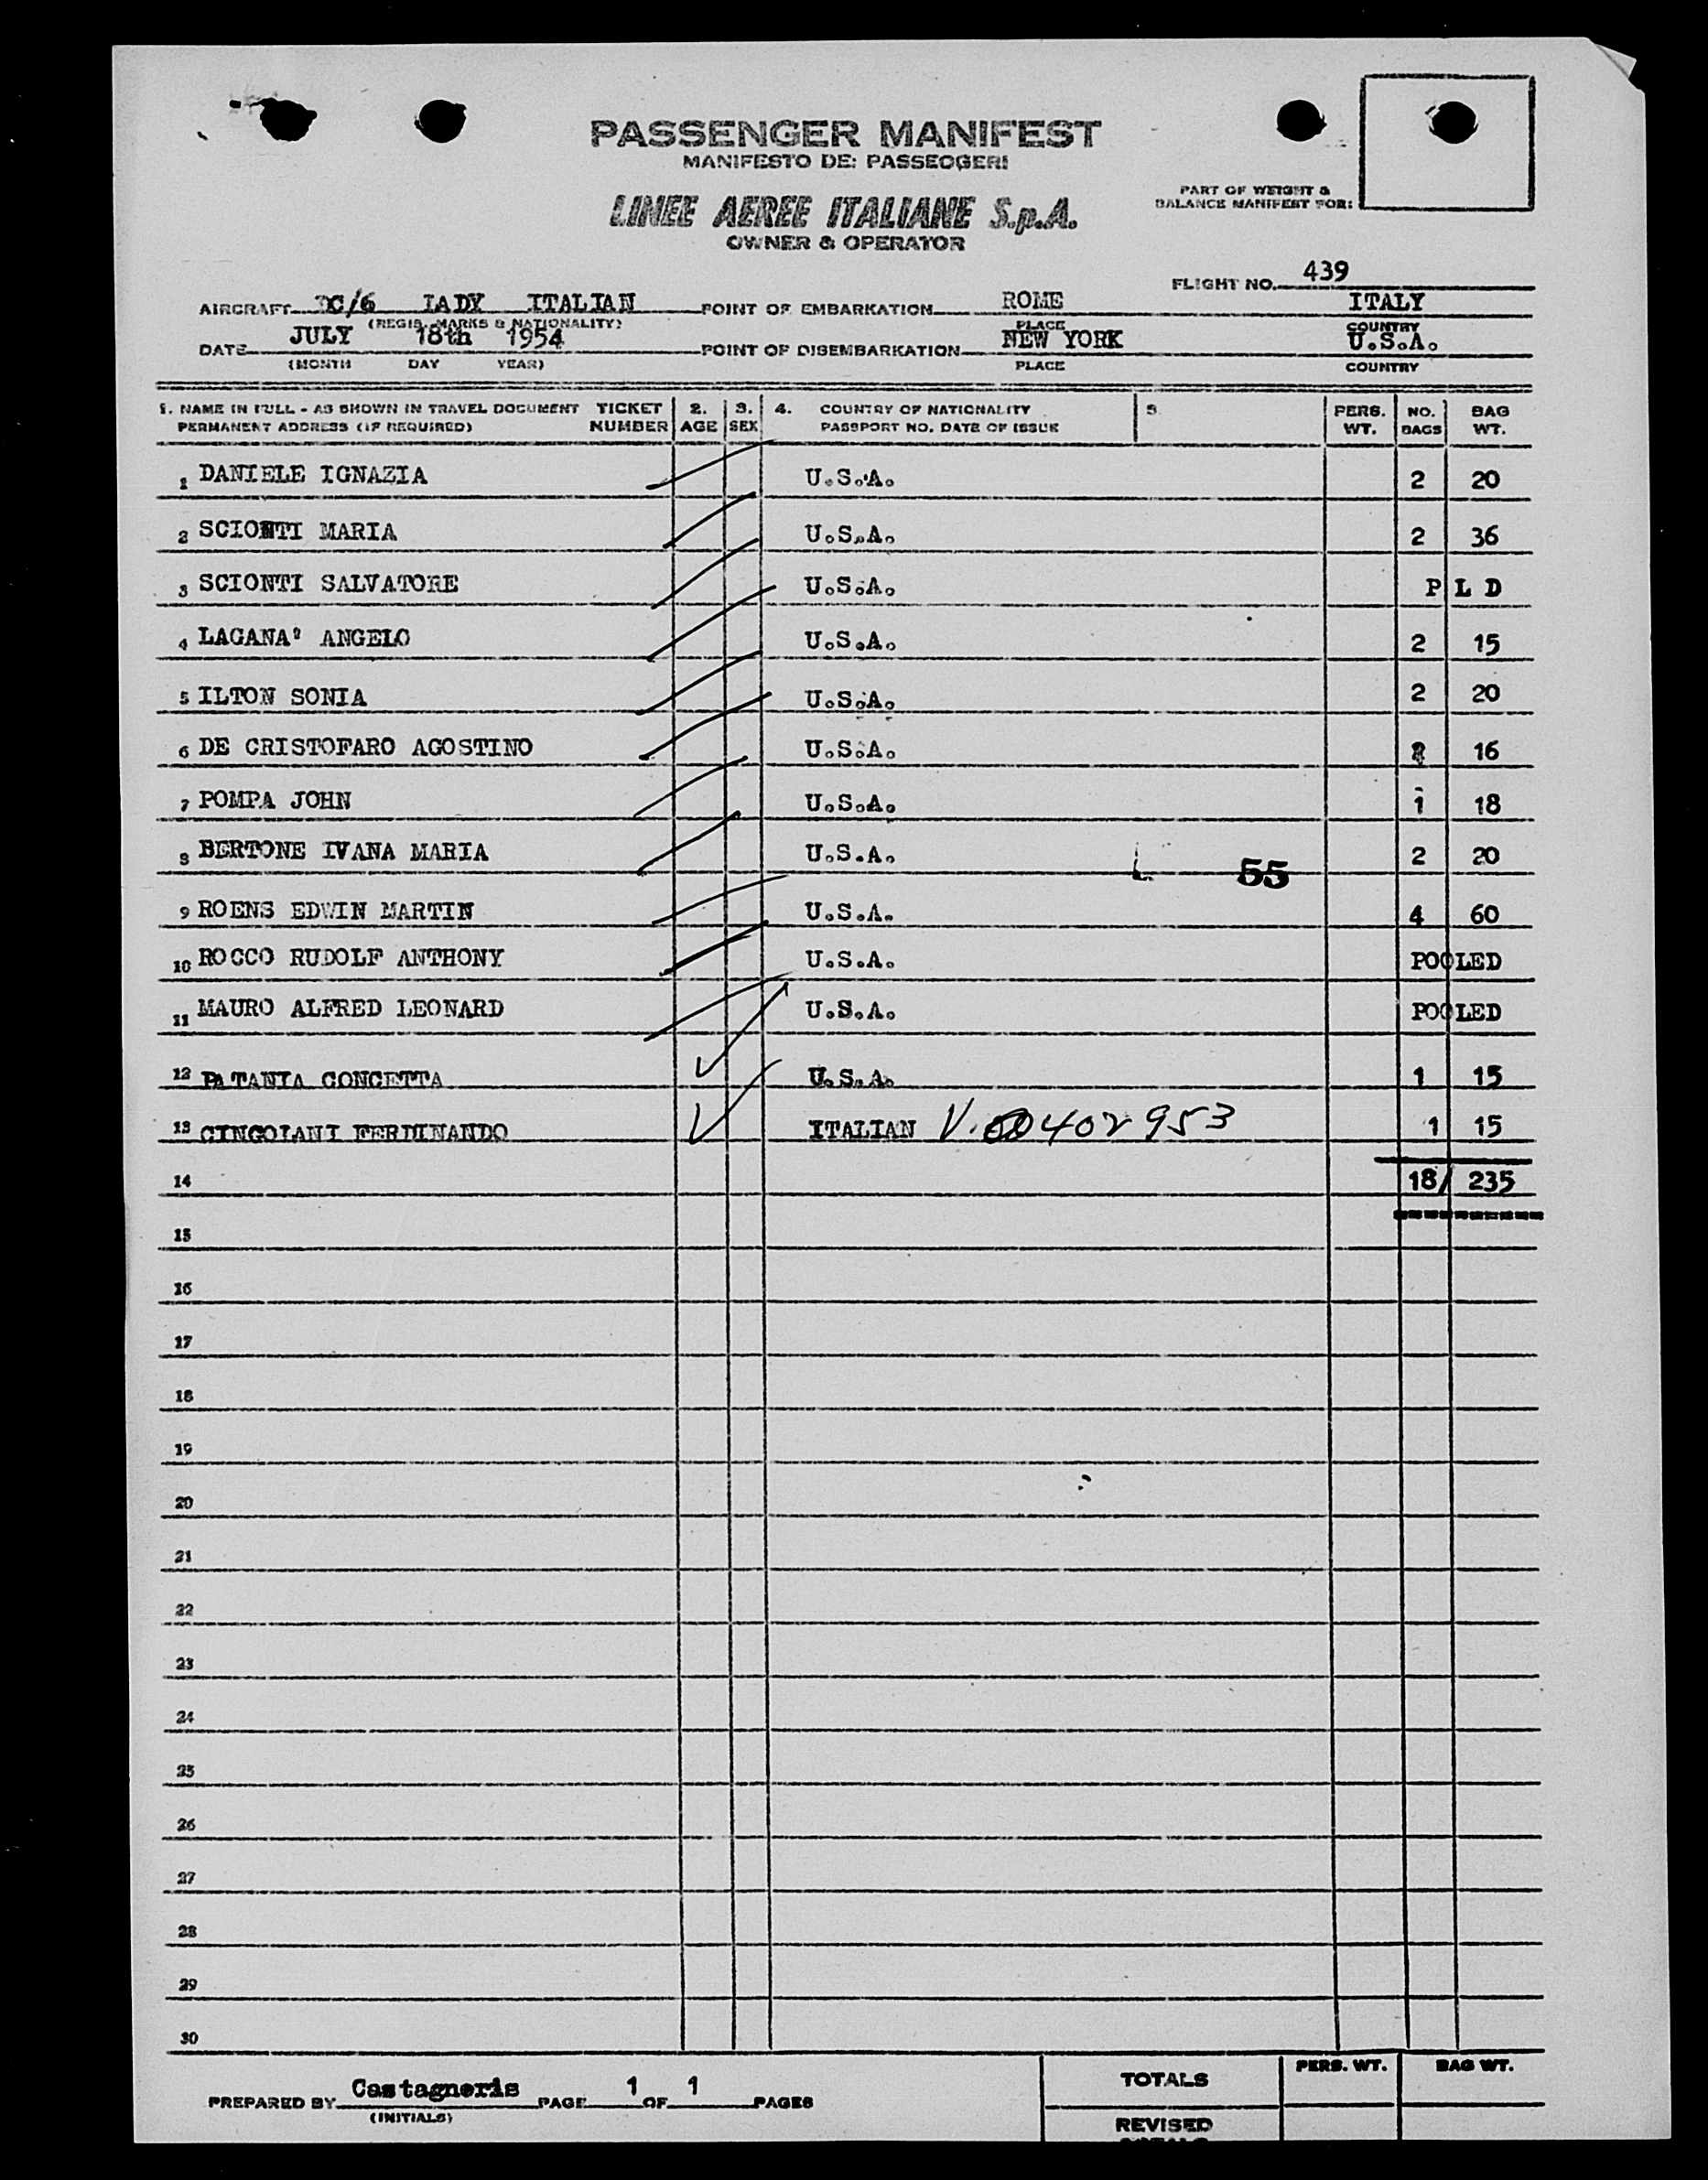 PASSENGER MANIFEST
MANIFESTO DEI PASSEGGERI
LINEE AEREE ITALIANE S.p.A.
OWNER & OPERATOR
PART OF WEIGHT &
BALANCE MANIFEST FOR:
FLIGHT NO. 439
AIRCRAFT DC/6 LADY ITALIAN POINT OF EMBARKATION ROME ITALY
(REGIS. MARKS & NATIONALITY) PLACE COUNTRY
DATE JULY 18th 1954 POINT OF DISEMBARKATION NEW YORK U.S.A.
(MONTH DAY YEAR) PLACE COUNTRY
1. NAME IN FULL - AS SHOWN IN TRAVEL DOCUMENT TICKET 2. 3. 4. COUNTRY OF NATIONALITY 5 PERS. NO. BAG
PERMANENT ADDRESS (IF REQUIRED) NUMBER AGE SEX PASSPORT NO. DATE OF ISSUE WT. BAGS WT.
1 DANIELE IGNAZIA U.S.A. 2 20
2 SCIONTI MARIA U.S.A. 2 36
3 SCIONTI SALVATORE U.S.A. P L D
4 LAGANA' ANGELO U.S.A. 2 15
5 ILTON SONIA U.S.A. 2 20
6 DE CRISTOFARO AGOSTINO U.S.A. 16
7 POMPA JOHN U.S.A. 1 18
8 BERTONE IVANA MARIA U.S.A. 55 2 20
9 ROENS EDWIN MARTIN U.S.A. 4 60
10 ROCCO RUDOLF ANTHONY U.S.A. POOLED
11 MAURO ALFRED LEONARD U.S.A. POOLED
12 PATANIA CONCETTA U.S.A. 1 15
13 CINGOLANI FERDINANDO ITALIAN 1 15
14 18/ 235
15
16
17
18
19
20
21
22
23
24
25
26
27
28
29
30
PERS. WT. BAG WT.
TOTALS
PREPARED BY Castagneris PAGE 1 OF 1 PAGES
(INITIALS)
REVISED